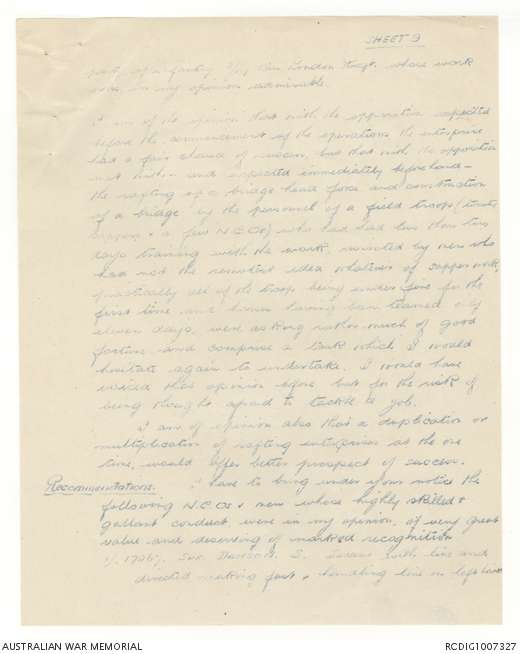 SHEET 9
party of infantry 2/19 Bn London Regt. whose work
was in my opinion admirable.
I am of the opinion that with the opposition expected
before the commencement of the operations the enterprise
had a fair chance of success, but that with the opposition
met with - and expected immediately beforehand -
the rafting of a bridge head force and construction
of a bridge by the personnel of a field troop (
sappers & a few N.C.Os) who had had less than ten
days training with the work, assisted by men who
had not the remotest idea whatever of sapper work,
practically all of the troop being under fire for the
first time, and having been teamed only
eleven days, were asking rather much of good
fortune and comprise a task which I would
hesitate again to undertake. I would have
voiced this opinion before but for the risk of
being thought afraid to tackle a job.
I am of opinion also that a duplication or
multiplication of rafting enterprises at the one
time, would offer better prospect of success.
Recommendations. I have to bring under your notice the
following N.C.Os & men whose highly skilled &
gallant conduct were in my opinion, of very great
value and deserving of marked recognition
S. Swam with line and
directed making fast & handling line on left bank
AUSTRALIAN WAR MEMORIAL
RCDIG1007327